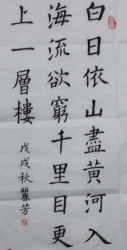 白日依山盡黃河入
海流欲窮千里目更
上一層樓
戊戌秋麗芳